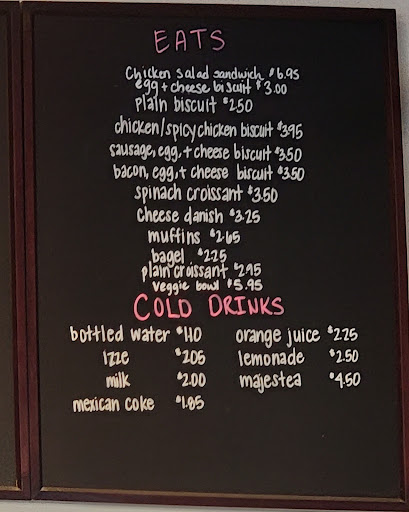 EATS
Chicken salad sandwich $6.95
egg + cheese biscuit $3.00
plain biscuit $2.50
chicken/spicy chicken biscuit $3.95
sausage, egg, + cheese biscuit $3.50
bacon, egg, + cheese biscuit $3.50
spinach croissant $3.50
cheese danish $3.25
muffins $2.65
bagel $2.25
plain croissant $2.95
veggie bowl $5.95
COLD DRINKS
bottled water $1.10 orange juice $2.25
Izze $2.05 lemonade $2.50
milk $2.00 majestea $4.50
mexican coke $1.85